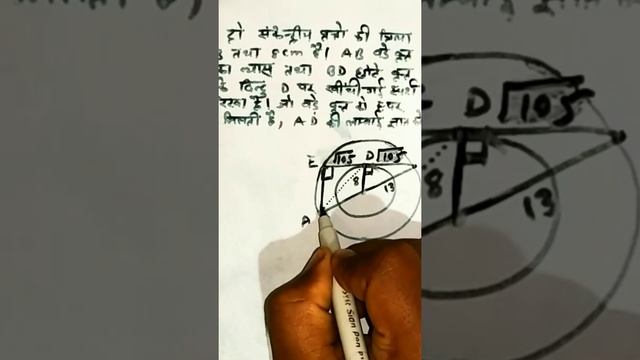 दो संकेन्द्रीय वृत्तो की त्रिज्या
तथा 8cm है। AB बड़े वृत्त
का व्यास तथा BD छोटे वृत्त
के बिन्दु D पर खींची गई स्पर्श
रेखा है। जो बड़े वृत्त को E पर
मिलती है, AD की लम्बाई ज्ञात
E √105 D √105
8
13
A
D √105
8
13